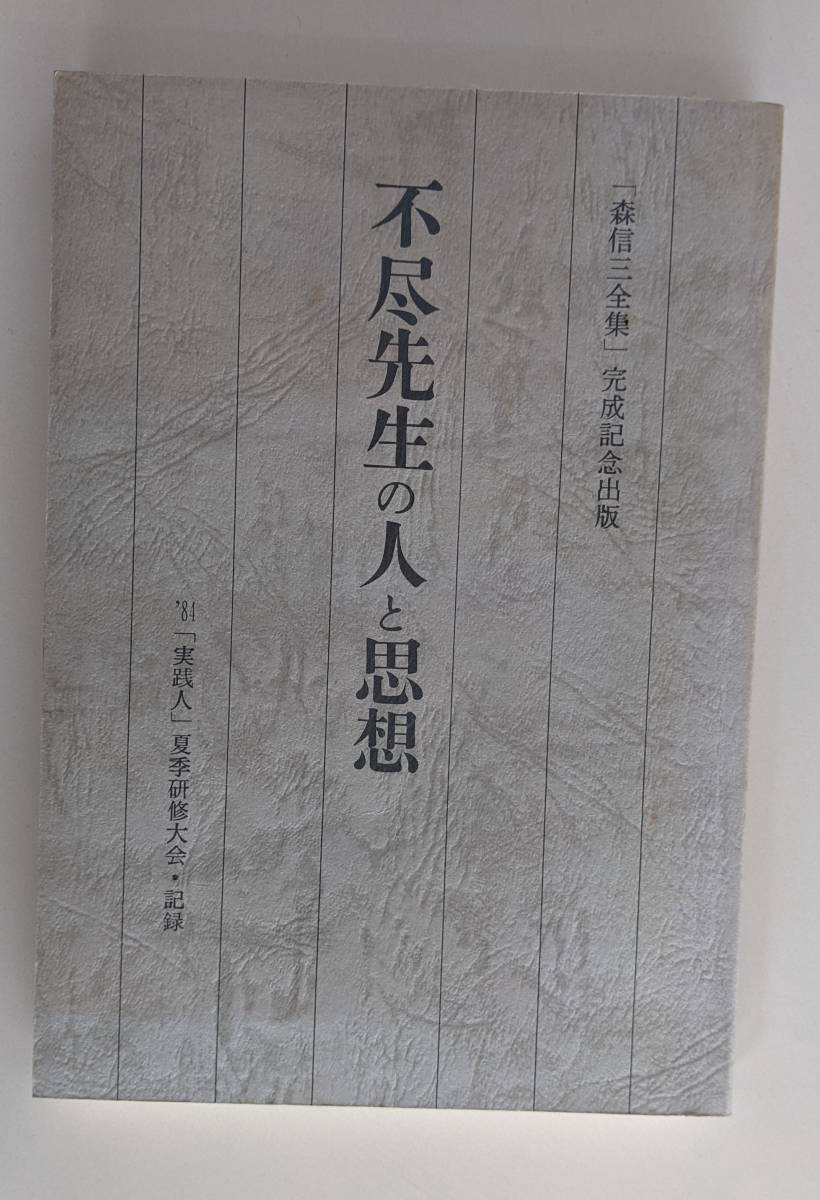 「森信三全集」完成記念出版
不尽先生の人と思想
’84「実践人」夏季研修大会・記録